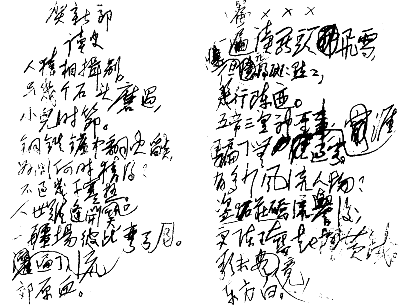 读史
人猿相揖别。
只几个石头磨过,
小儿时节。
铜铁炉中翻火焰,
为问何时猜得?
不过几千寒热。
人世难逢开口笑
疆场彼此弯弓月。
遍了 流
郊原血。
× × ×
一篇读罢头飞雪,
斑斑点点,
几行陈迹。
五帝三皇神圣事,
骗了无涯
有多少风流人物?
盗跖庄蹻流誉后,
更陈王奋起挥黄钺。
歌未竟,
东方白。